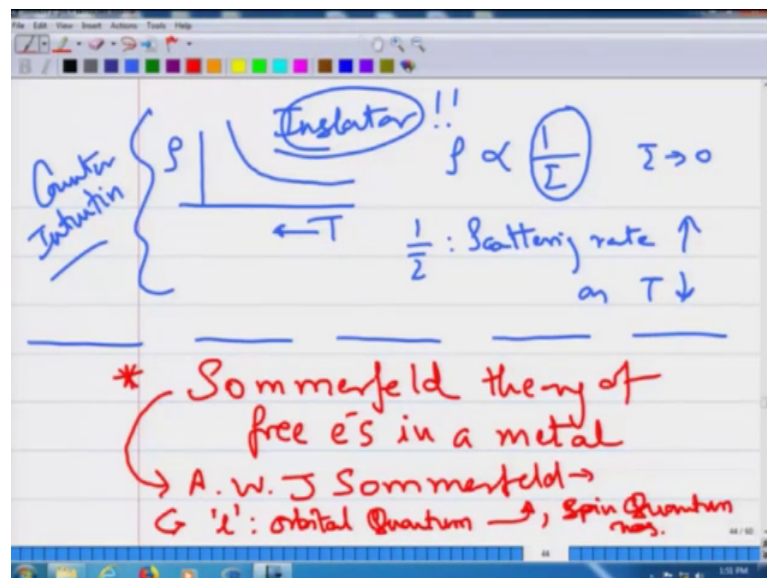 File Edit View Insert Actions Tools Help
B I
Counter
Intuitin
ρ
Inslator !!
← T
ρ ∝ 1/τ τ → 0
1/2 : Scattering rate ↑
as T ↓
* Sommerfeld theory of
free e's in a metal
→ A.W.J Sommerfeld →
'l' : orbital Quantum ⤴, Spin Quantum
nos.
44 / 60
44
1:51 PM